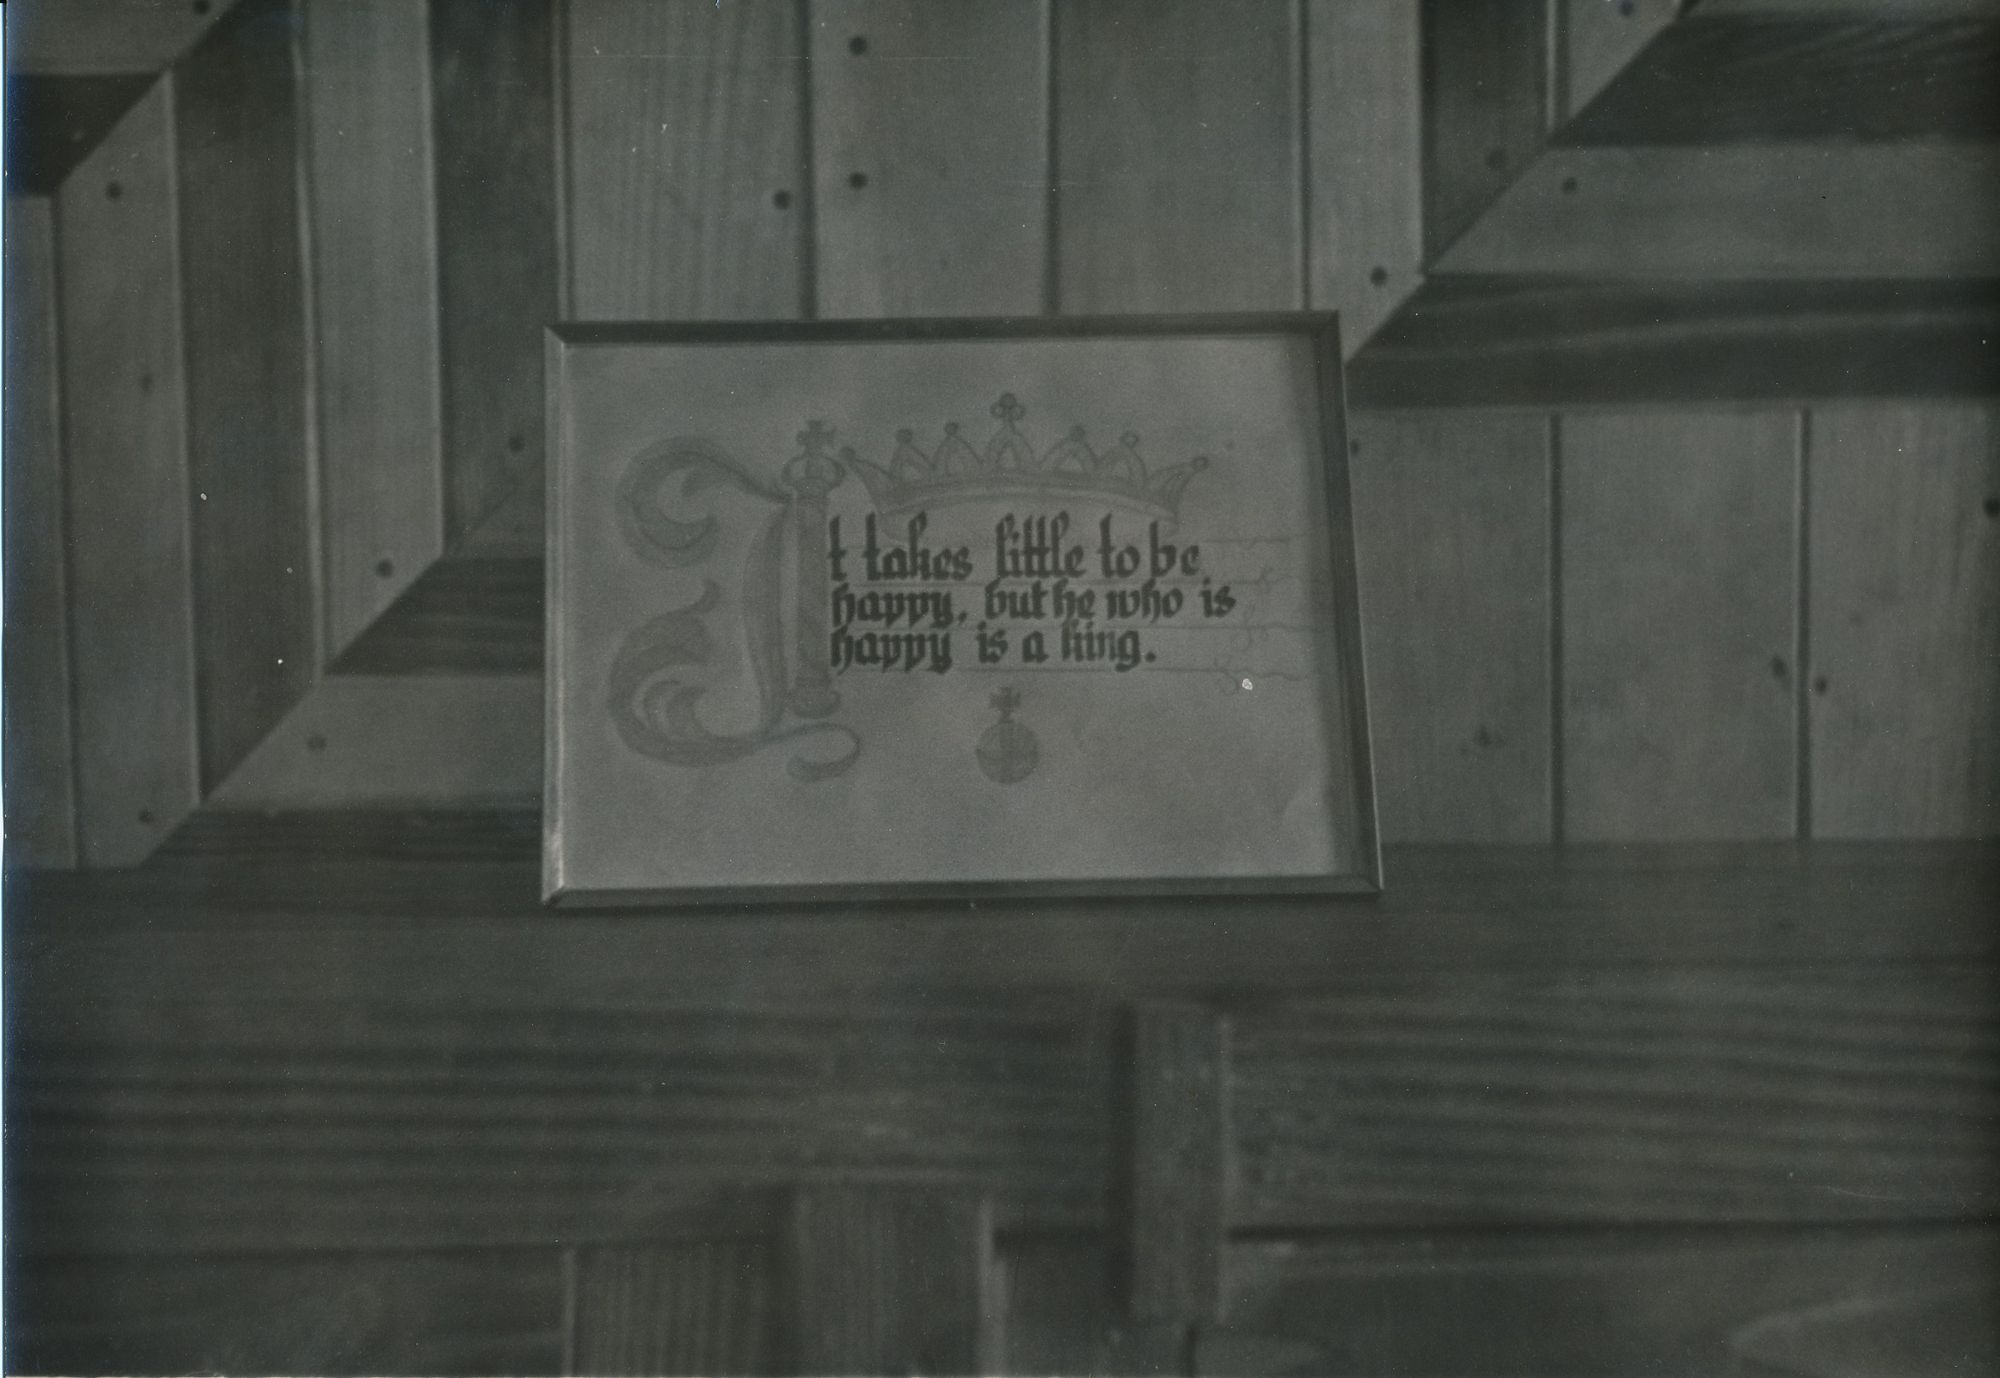 It takes little to be
happy, but he who is
happy is a king.